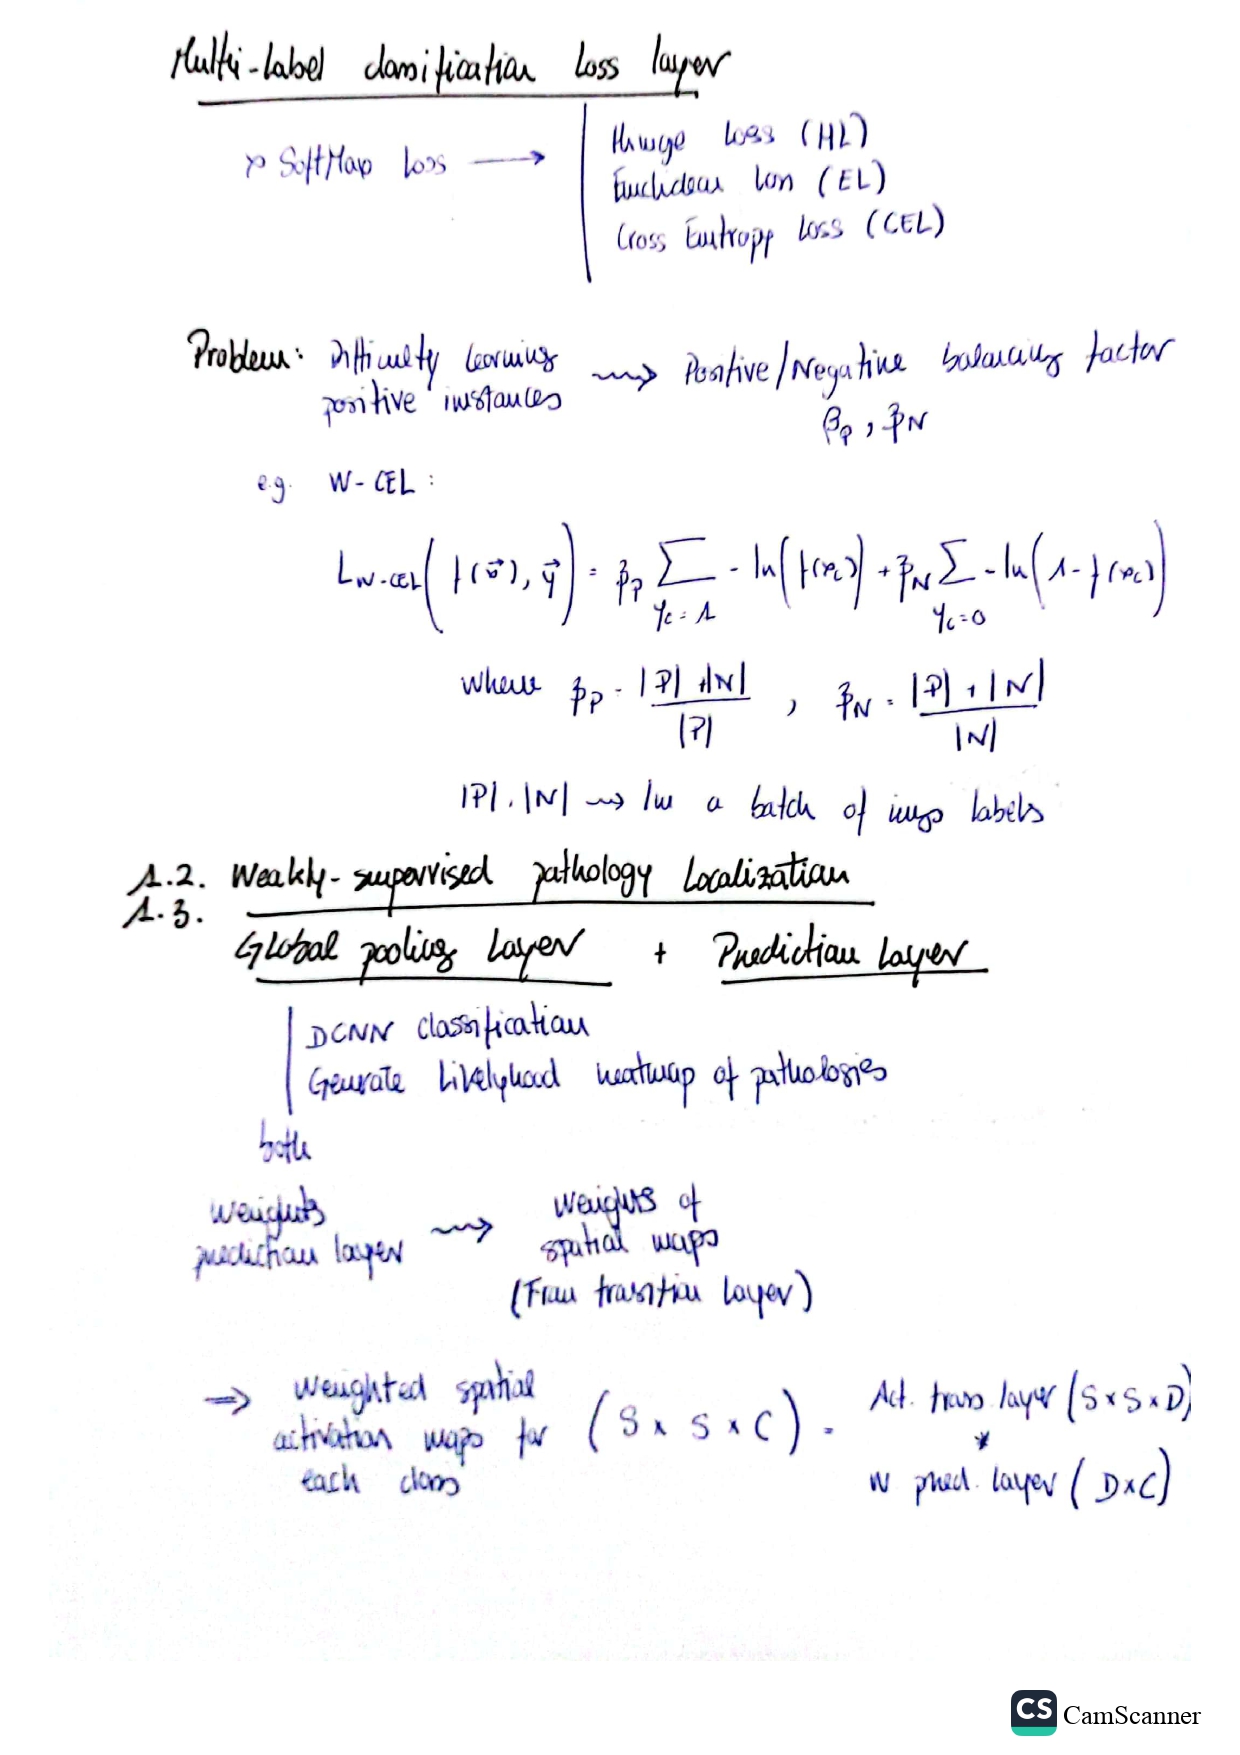 Multi-Label classification Loss layer
SoftMax Loss ⟶
Hinge Loss (HL)
Euclidean Loss (EL)
Cross Entropy Loss (CEL)
Problem: Difficulty learning ⇝ Positive/Negative balancing factor
positive instances
βp, βN
e.g. W-CEL:
L_W-CEL(f(x⃗), y⃗) = βP Σ_{yc=1} - ln(f(xc)) + βN Σ_{yc=0} - ln(1 - f(xc))
where βP = (|P| + |N|)/|P| , βN = (|P| + |N|)/|N|
|P|, |N| ⇝ In a batch of imgs labels
1.2. Weakly-supervised pathology Localization
1.3.
Global pooling Layer + Prediction Layer
DCNN classification
Generate Likelyhood heatmap of pathologies
both
weights ⇝ Weights of
prediction layer spatial maps
(From transition Layer)
⇒ Weighted spatial activation maps for each class (S × S × C) = Act. trans layer (S × S × D)
*
W pred. layer (D × C)
CS CamScanner